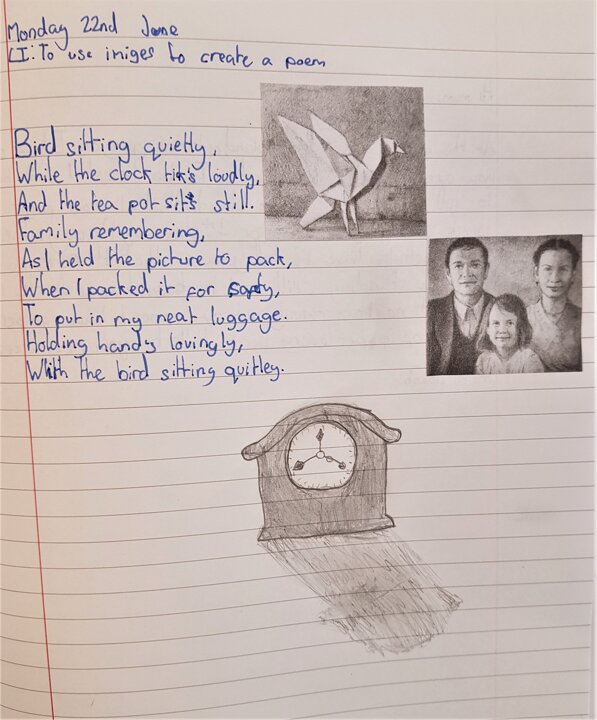 Monday 22nd June
LI: To use iniges to create a poem
Bird sitting quietly,
While the clock tik's loudly,
And the tea pot sits still.
Family remembering,
As I held the picture to pack,
When I packed it for safty,
To put in my neat luggage.
Holding hands lovingly,
With the bird sitting quitley.